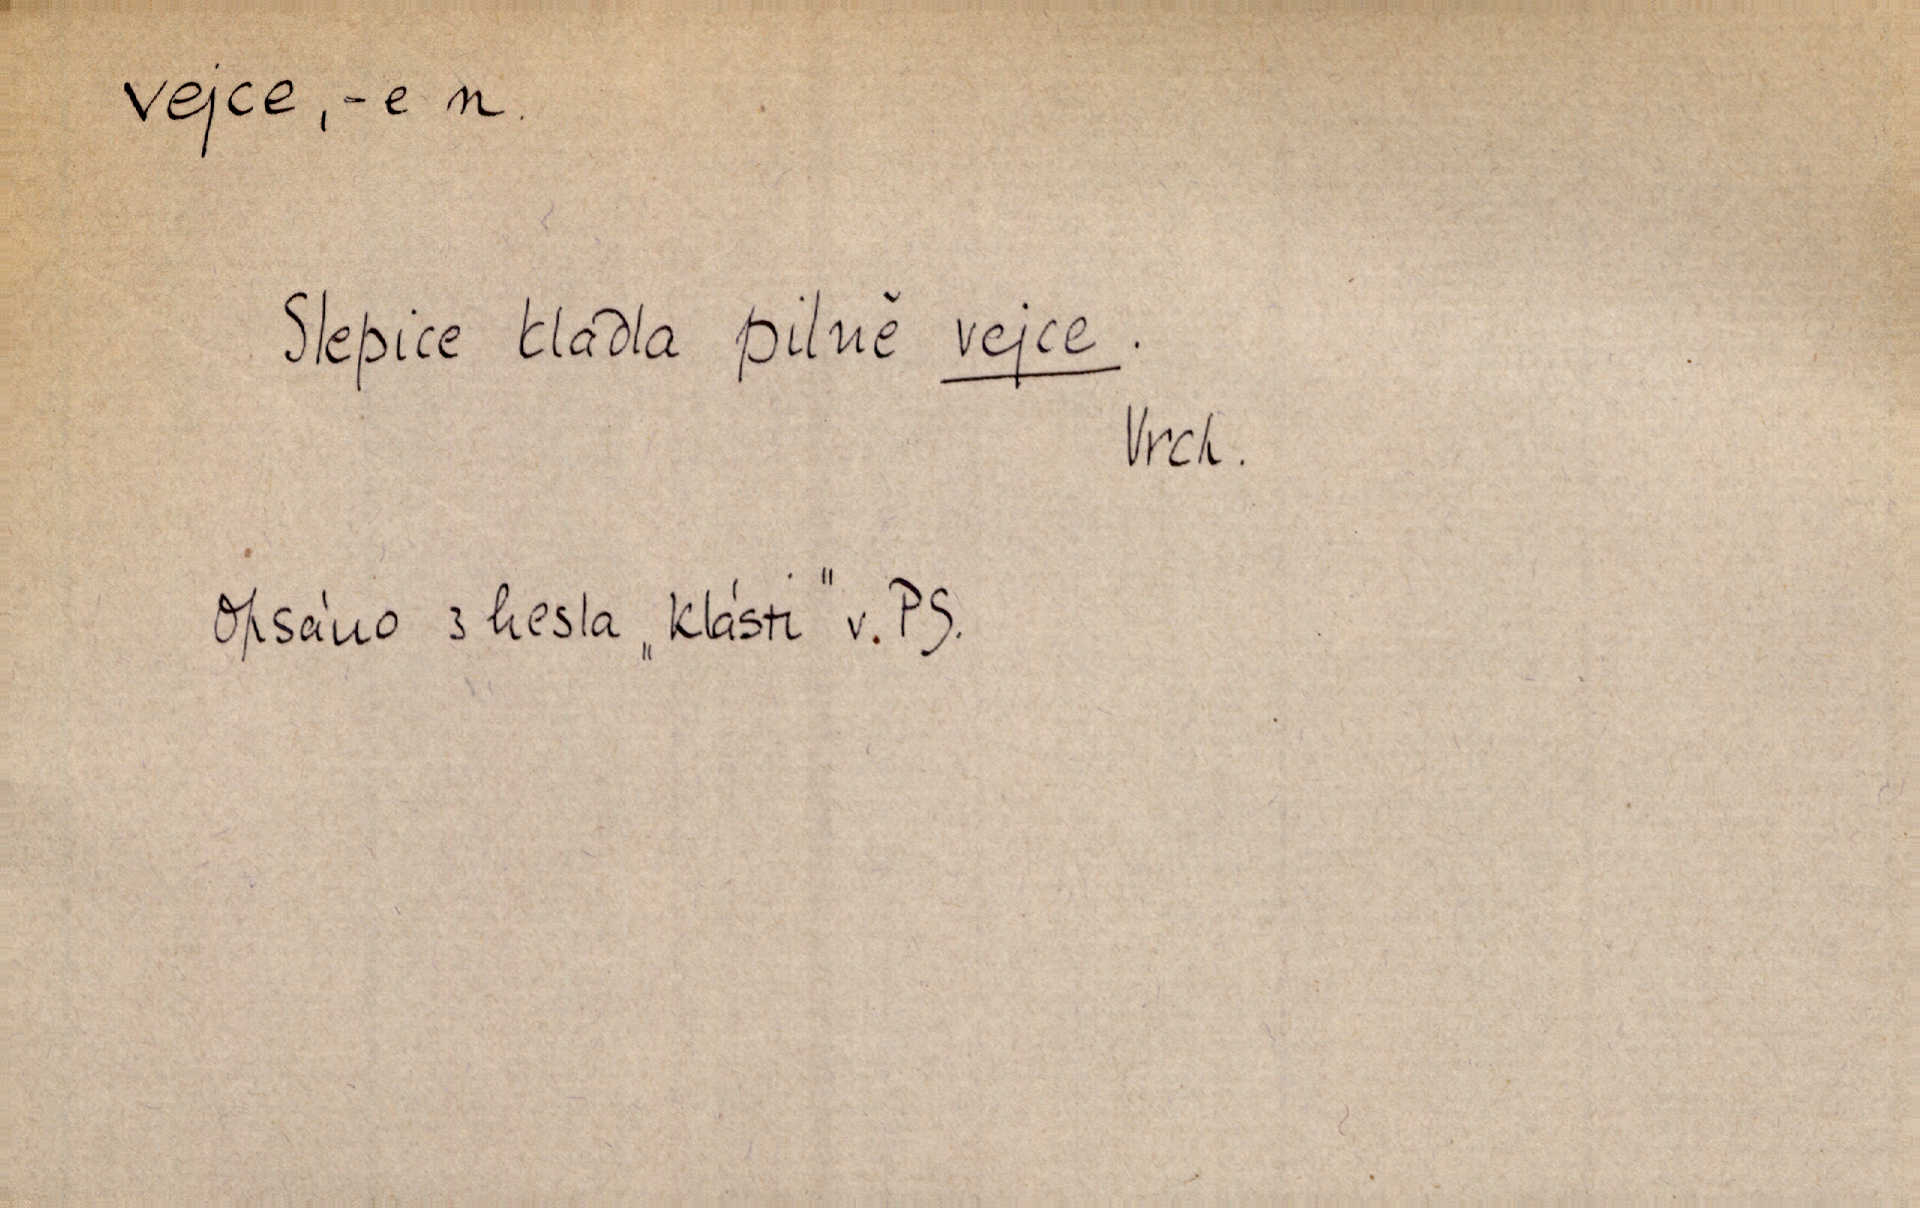 vejce, -e n.
Slepice kladla pilně vejce.
Vrch.
Opsáno z hesla „klásti" v. PS.